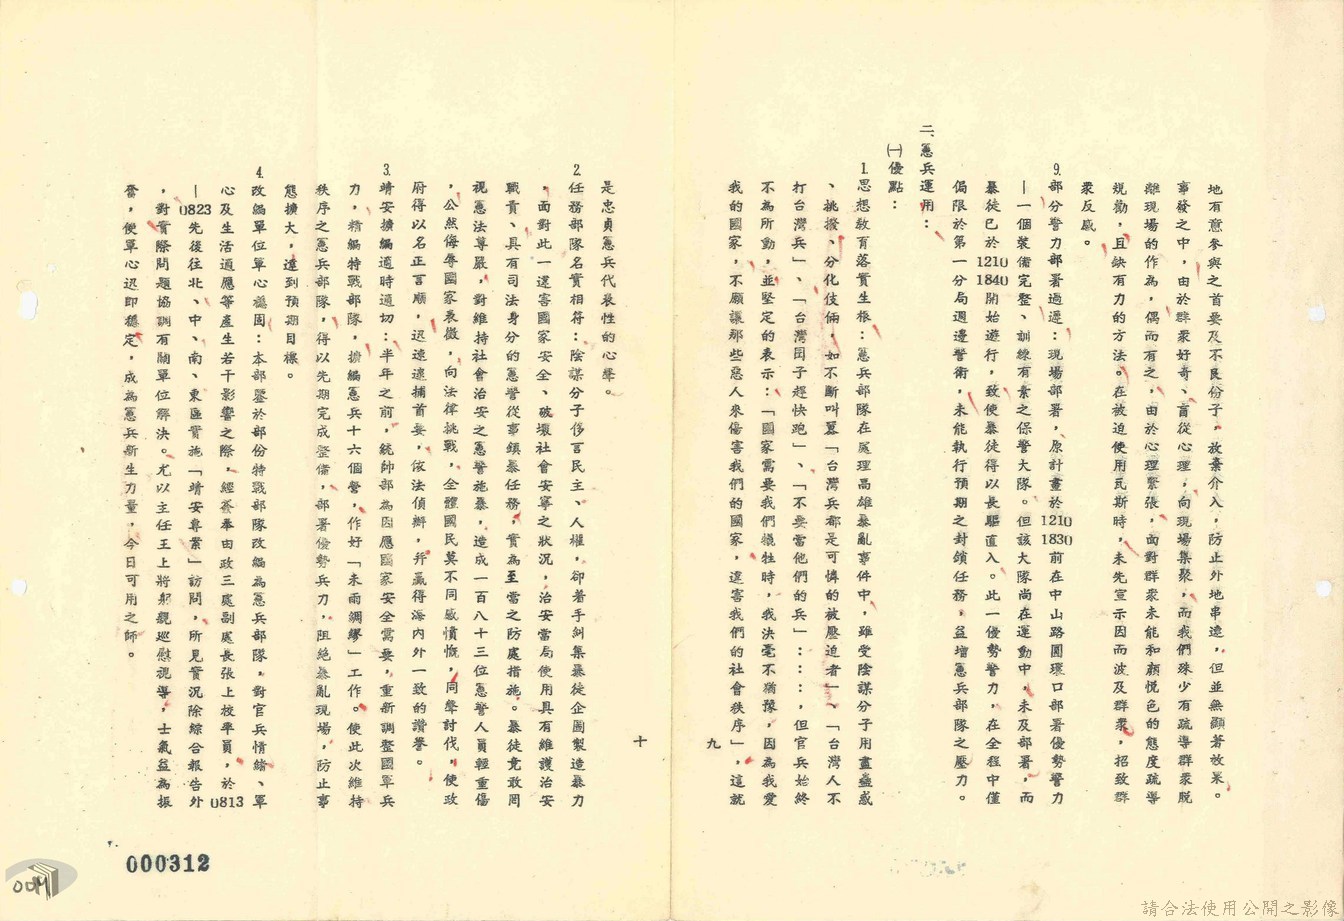 地有意參與之首要及不良份子，放棄介入，防止外地串連，但並無顯著效果。
事發之中，由於群衆好奇、盲從心理，向現場集聚，而我們殊少有疏導群衆脱
離現場的作為，偶而有之，由於心理緊張，面對群衆未能和顏悅色的態度疏導
規勸，且缺有力的方法。在被迫使用瓦斯時，未先宣示因而波及群衆，招致群
衆反感。
9.部分警力部署過遲：現場部署，原計畫於1210 1830前在中山路圓環口部署優勢警力
—一個裝備完整、訓練有素之保警大隊。但該大隊尚在運動中，未及部署，而
暴徒已於1210 1840開始遊行，致使暴徒得以長驅直入。此一優勢警力，在全程中僅
侷限於第一分局週邊警衛，未能執行預期之封鎖任務，益增憲兵部隊之壓力。
二、憲兵運用：
㈠優點：
1.思想教育落實生根：憲兵部隊在處理高雄暴亂事件中，雖受陰謀分子用盡蠱惑
、挑撥、分化伎倆，如不斷叫囂「台灣兵都是可憐的被壓迫者」、「台灣人不
打台灣兵」、「台灣囝子趕快跑」、「不要當他們的兵」：：：，但官兵始終
不為所動，並堅定的表示：「國家需要我們犧牲時，我決毫不猶豫，因為我愛
我的國家，不願讓那些惡人來傷害我們的國家，違害我們的社會秩序」，這就
九
十
是忠貞憲兵代表性的心聲。
2.任務部隊名實相符：陰謀分子侈言民主、人權，卻着手糾集暴徒企圖製造暴力
，面對此一違害國家安全、破壞社會安寧之狀況，治安當局使用具有維護治安
職責、具有司法身分的憲警從事鎮暴任務，實為至當之防處措施。暴徒竟敢罔
視憲法尊嚴，對維持社會治安之憲警施暴，造成一百八十三位憲警人員輕重傷
，公然侮辱國家表徵，向法律挑戰，全體國民莫不同感憤慨，同聲討伐，使政
府得以名正言順，迅速逮捕首要，依法偵辦，并贏得海內外一致的讚譽。
3.靖安擴編適時適切：半年之前，統帥部為因應國家安全需要，重新調整國軍兵
力，精編特戰部隊，擴編憲兵十六個營，作好「未雨綢繆」工作。使此次維持
秩序之憲兵部隊，得以先期完成整備，部署優勢兵力，阻絶暴亂現場，防止事
態擴大，達到預期目標。
4.改編單位軍心穩固：本部鑒於部份特戰部隊改編為憲兵部隊，對官兵情緒、軍
心及生活適應等產生若干影響之際，經簽奉由政三處副處長張上校率員，於0813
—0823先後往北、中、南、東區實施「靖安專案」訪問，所見實況除綜合報告外
，對實際問題協調有關單位解決。尤以主任王上將躬親巡慰視導，士氣益為振
奮，使軍心迅即穩定，成為憲兵新生力量，今日可用之師。
000312
004
請合法使用公開之影像